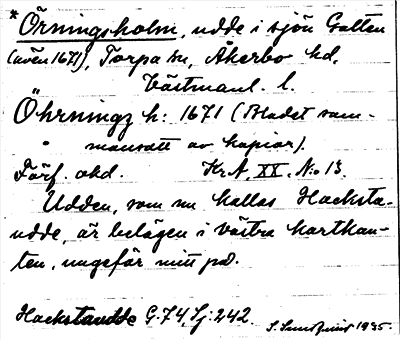 *Örningsholm, udde i sjön Galten
(även 1671), Torpa sn, Åkerbo hd,
Västmanl. l.
Öhrningz h: 1671 (Bladet sam-
mansatt av kopior).
Förf. okd. Kr.A, XX. N:o 13.
Udden, som nu kallas Hacksta-
udde, är belägen i västra kartkan-
ten, ungefär mitt på.
Hackstaudde G. 74, Sj: 242.
S. 1935.